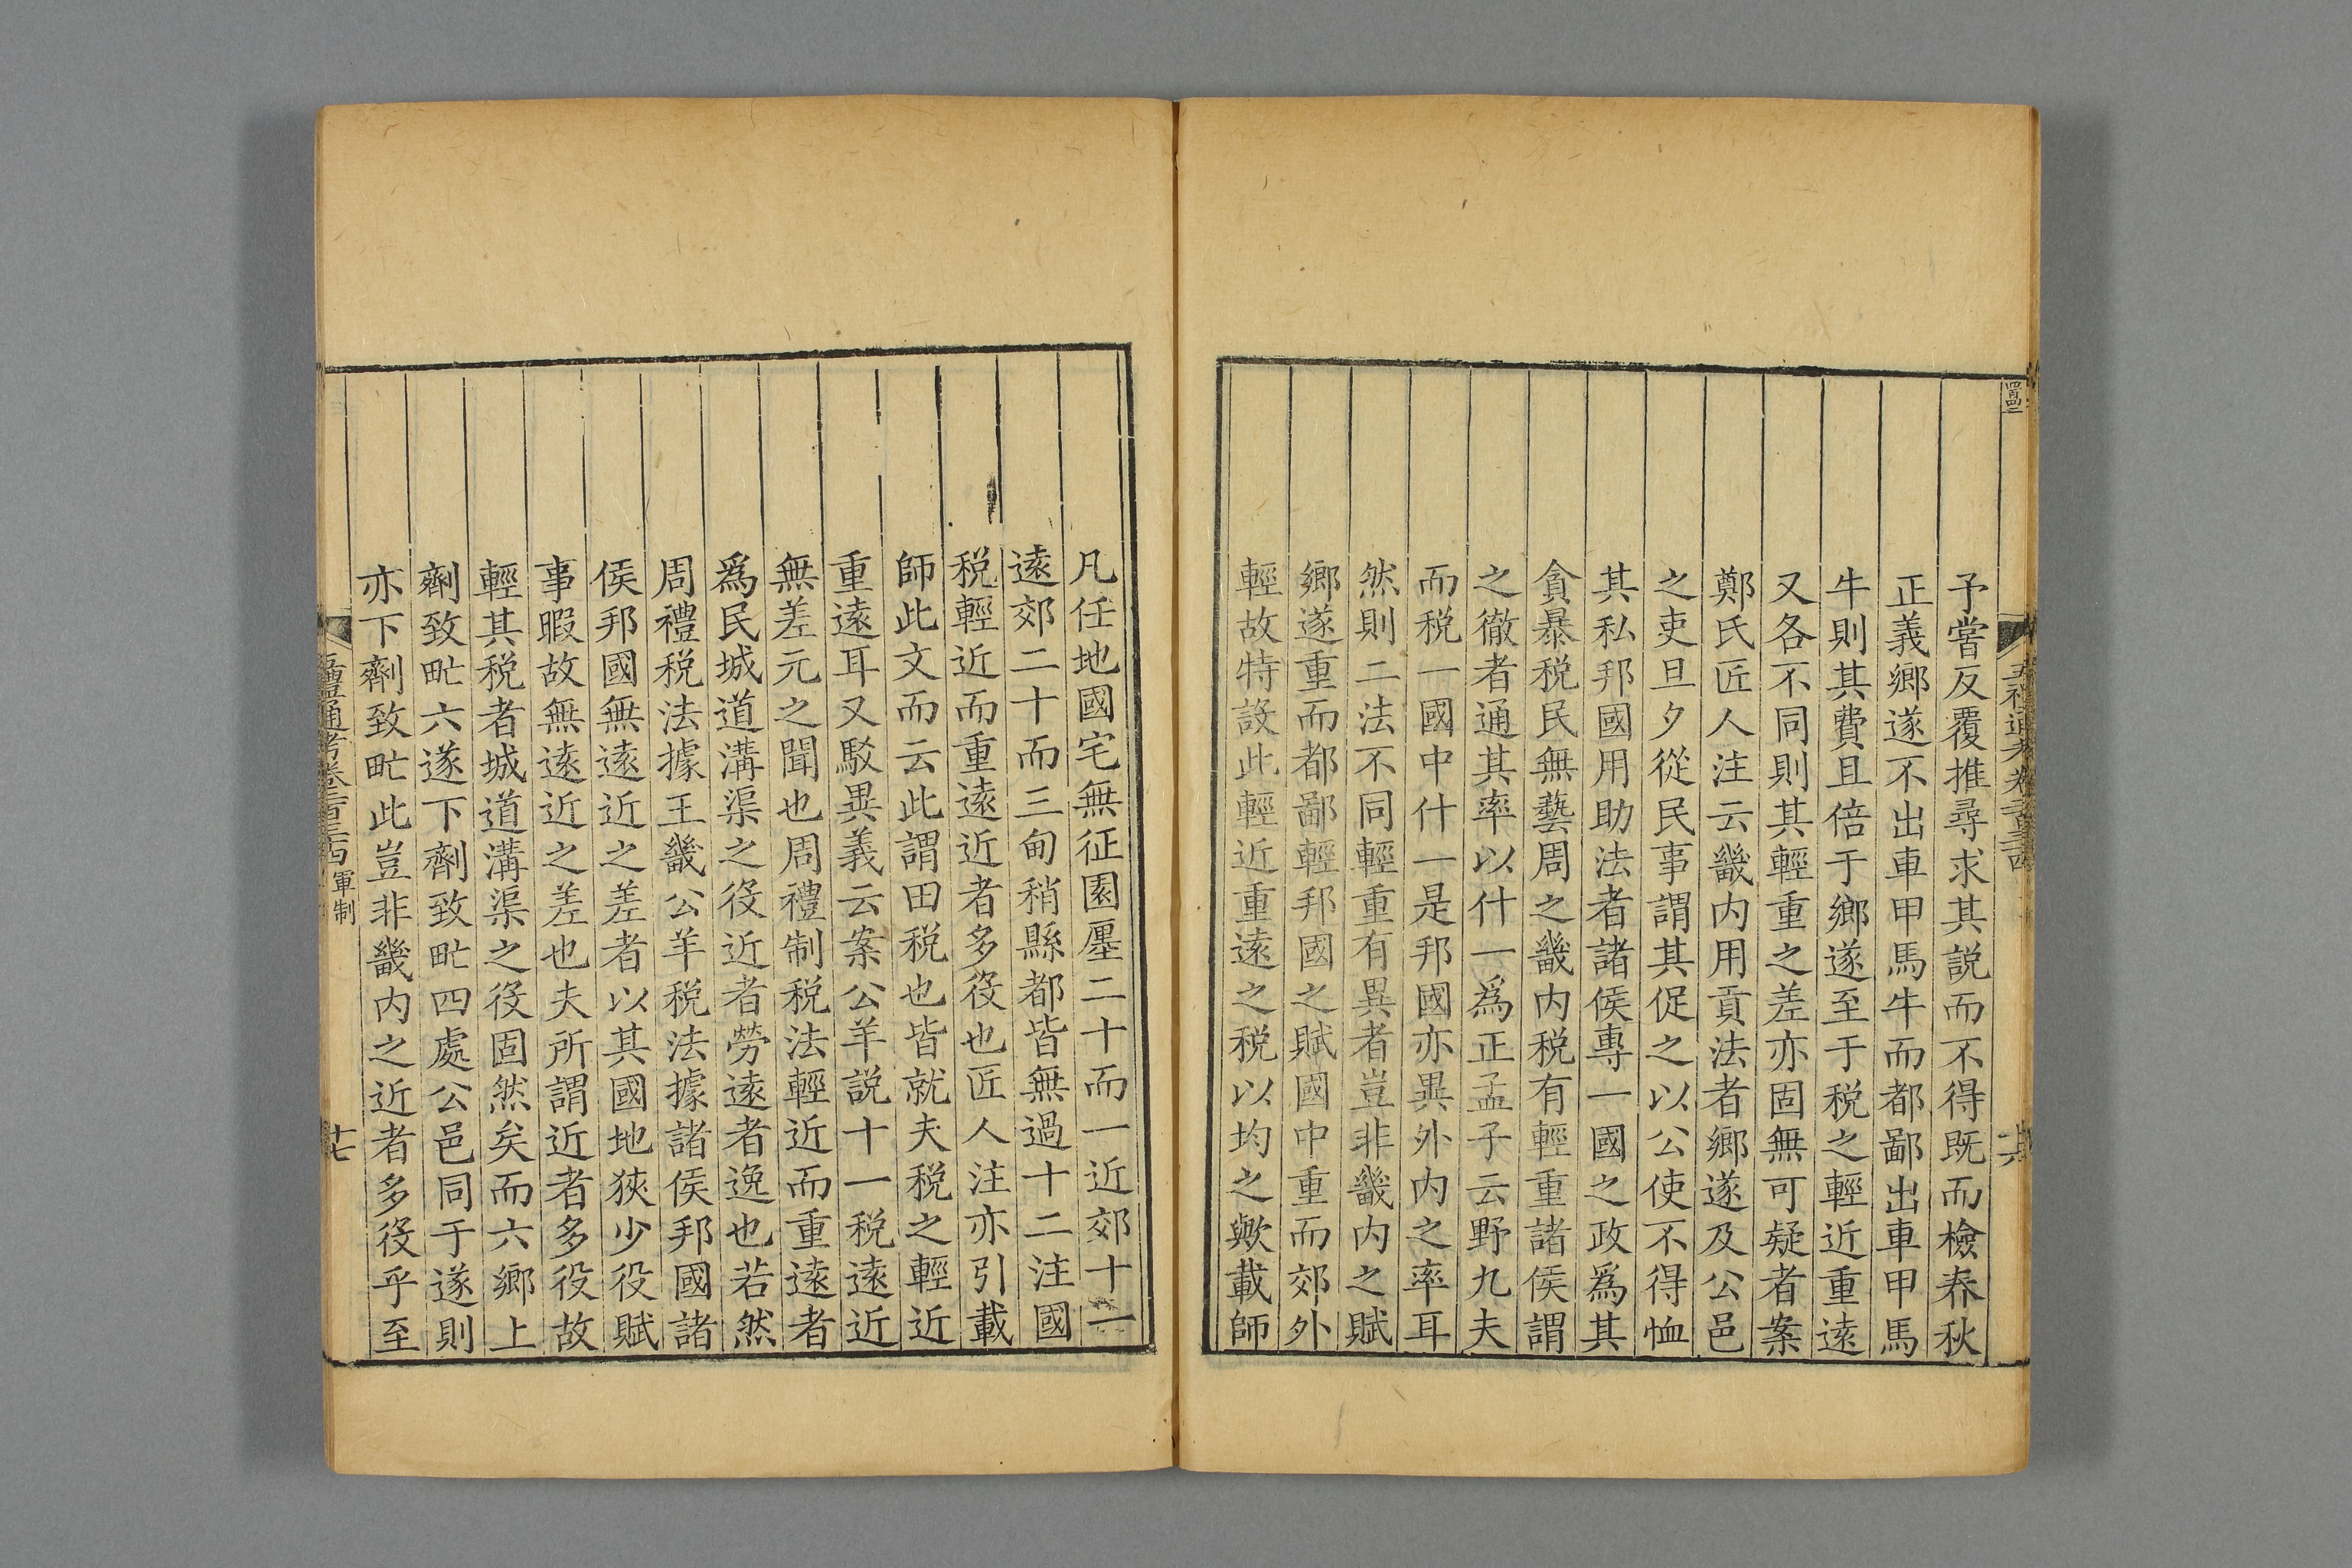 予嘗反覆推尋求其説而不得既而檢春秋
正義鄉遂不出車甲馬牛而都鄙出車甲馬
牛則其費且倍于鄉遂至于税之輕近重遠
又各不同則其輕重之差亦固無可疑者案
鄭氏匠人注云畿内用貢法者鄉遂及公邑
之吏旦夕從民事謂其促之以公使不得恤
其私邦國用助法者諸侯專一國之政爲其
貪暴税民無藝周之畿内税有輕重諸侯謂
之徹者通其率以什一爲正孟子云野九夫
而税一國中什一是邦國亦異外内之率耳
然則二法不同輕重有異者豈非畿内之賦
鄉遂重而都鄙輕邦國之賦國中重而郊外
輕故特設此輕近重遠之税以均之歟載師
凡任地國宅無征園廛二十而一近郊十一
遠郊二十而三甸稍縣都皆無過十二注國
税輕近而重遠近者多役也匠人注亦引載
師此文而云此謂田税也皆就夫税之輕近
重遠耳又駁異義云案公羊説十一税遠近
無差元之聞也周禮制税法輕近而重遠者
爲民城道溝渠之役近者勞遠者逸也若然
周禮税法據王畿公羊税法據諸侯邦國諸
侯邦國無遠近之差者以其國地狹少役賦
事暇故無遠近之差也夫所謂近者多役故
輕其税者城道溝渠之役固然矣而六鄉上
劑致甿六遂下劑致甿四處公邑同于遂則
亦下劑致甿此豈非畿内之近者多役乎至
五禮通考卷二百三十四 軍制
十七